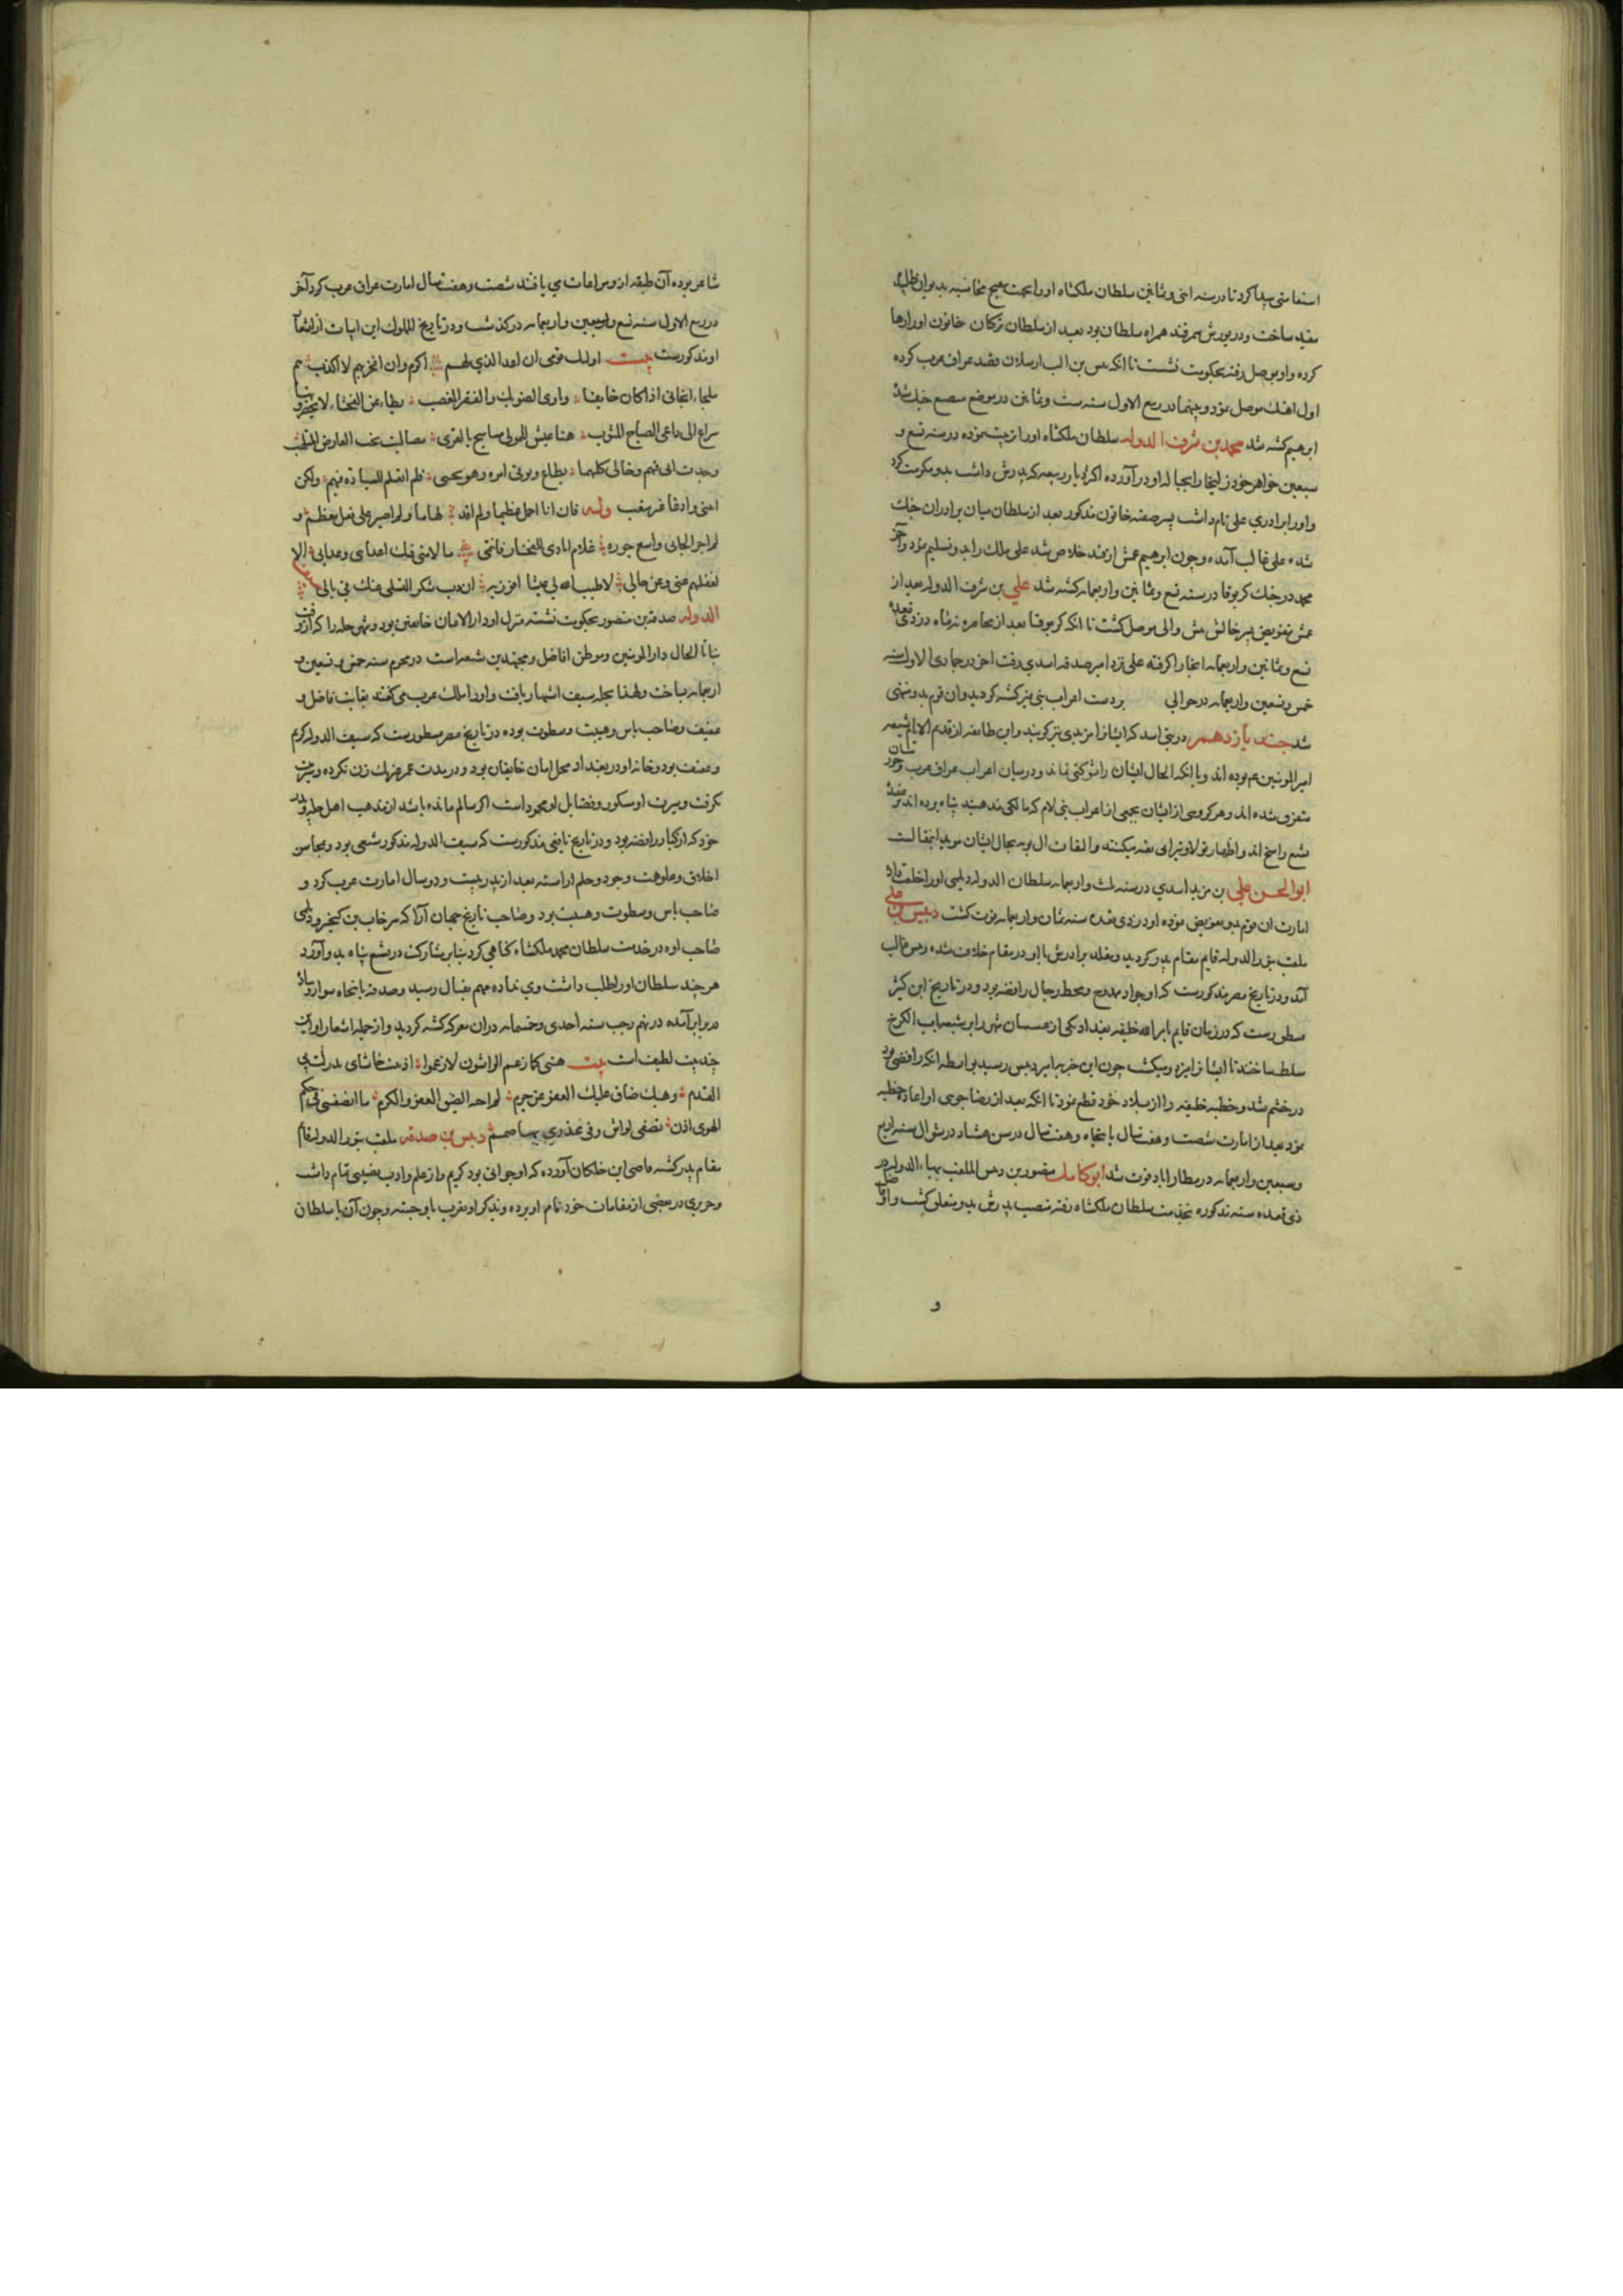 استعاشی پیدا کرد تا در سنه اثنی و ثمانین سلطان ملکشاه او را بجهت محاسبه بدیوان طلبید
مقید ساخت و در یورش سمرقند همراه سلطان بود بعد از سلطان ترکان خاتون او را رها
کرده و او بموصل رفته بحکومت نشست تا انکه تتش بن الب ارسلان بقصد عراق عرب کرده
اول اهنك موصل نمود و بینهما در ربیع الاول سنه ست و ثمانین در موضع مضیع جنك شد
ابرهیم کشته شد محمد بن شرف الدوله سلطان ملکشاه او را تربیت نموده در سنه تسع و
سبعین خواهر خود زلیخا را بحباله او در آورده اکثر دیار ربیعه که پدرش داشت بدو مکرمت کرد
و او را برادری علی نام داشت پسر صفیه خاتون مذکور بعد از سلطان میان برادران جنك
شده علی غالب آمده و چون ابرهیم عمش از بند خلاص شد علی ملك را بدو تسلیم نمود و آخر
محمد در جنك کربوقا در سنه تسع و ثمانین و اربعمائه کشته شد علی بن شرف الدوله بعد از
عمش بتفویض پسر خالش تتش والی موصل گشت تا انکه کربوقا بعد از محاصره نه ماه در ذی قعده
تسع و ثمانین و اربعمائه انجا را کرفته علی نزد امیر صدقه اسدی رفت اخر در جمادی الاول سنه
خمس و تسعین و اربعمائه در حوالی بردست اعراب بنی نمیر کشته کردید وان قوم بدو منتهی
شد جند یازدهمر در بنی اسد که ایشانرا مزیدی نیز کویند و این طایفه از قدیم الایام شیعه
امیر المومنین عم بوده اند و با انکه الحال ایشان را شوکتی نمانده و در میان اعراب عراق عرب وجود شان
متفرق شده اند و هر کروهی از ایشان بجمعی از اعراب بنی لام که مالکی مذهبند پناه برده اند در عقیده
تشیع راسخ اند و اظهار تولا و تبرا بی تقیه میکنند و التفات ال بویه بحال ایشان موید اینمقالست
ابو الحسن علی بن مزید اسدی در سنه ثلث و اربعمائه سلطان الدوله دیلمی او را خلعت داده
امارت ان قوم بدو تفویض نموده او در ذی قعده سنه ثمان و اربعمائه فوت گشت دبیس بن علی
ملقب بنور الدوله قایم مقام پدر کردید و مقلد برادرش با او در مقام خلاف شده دبیس غالب
آمد و در تاریخ مصر مذکورست که او جواد ممدوح و محط رجال رافضه بود و در تاریخ ابن کثیر
مسطورست که در زمان قایم بامر الله خلیفه بغداد یکی از عسسان شهر را بر شیعه باب الکرخ
مسلط ساختند تا ایشانرا ایزد و میکشت چون این خبر بامیر دبیس رسید بواسطه انکه رافضی بود
در خشم شد و خطبه خلیفه را از بلاد خود قطع نمود تا انکه بعد از رضا جویی او اعاده خطبه
نمود بعد از امارت شصت و هفت سال با پنجاه و هفت سال در سن هشتاد در شوال سنه اربع
و سبعین و اربعمائه در مطار اباد فوت شد ابو کامل منصور بن دبیس الملقب ببهاء الدوله در
ذی قعده سنه مذکوره بخدمت سلطان ملکشاه رفته منصب پدرش بدو متعلق گشت و او فاضل
و
شاعر بوده آن طبقه از و مراعات می یافتند شصت و هفت سال امارت عراق عرب کرد آخر
در ربیع الاول سنه تسع و سبعین و اربعمائه در کذشت و در تاریخ الملوك این ابیات از اشعار
او مذکورست بیت اولئك قومی ان اعد الذي لهم اکرم وان افخر بهم لا اکذب هم
ملجاء الجانی اذا کان خایفا وماوی الضریك والفقیر المعصب بطاء عن الفحشاء لا یحضرونها
سراع الی داعی الصباح المثوب مناعیش للمولی مسامیح بالقری مصالیت تحت العارض المتلهب
وجدت ابی فیهم وخالی کلیهما یطاع ویوتی امره وهو محتبی فلم اتعلم للسیادة فیهم ولکن
اتتنی وادعا غیر متعب وله فان انا احمل عظیما ولم اقد لهاما ولم اصبر علی فعل معظم و
لم اجر الجانی وامنع جوره غلام انادی للفخار فانتمی ما لامنی فیك اعدای وعدالی الا
لغفلتهم عنی وعن حالی لا طیب الله لی عیشا افوز به ان دب سکر التسلی عنك فی بالی سیف
الدوله صدقه بن منصور بحکومت نشسته منزل او دار الامان خایفین بود و شهر حله را که از ان وقت
تا بنا الحال دار المومنین و موطن افاضل و مجتهدین شعراست در محرم سنه خمس و تسعین و
اربعمائه بساخت و لهذا بحله سیف اشتهار یافت و او را ملك عرب می کفتند بغایت فاضل و
عفیف و صاحب باس و هیبت و سطوت بوده در تاریخ مصر مسطورست که سیف الدوله کریم
و عفیف بود و خانه او در بغداد محل امان خایفان بود و در مدت عمر جز یك زن نکرده و سریت
نکرفت و سیرت او مشکور و فضایل او محمودست اکر سالم مانده باشد از مذهب اهل حله و پدر
خود که از کبار رافضه بود و در تاریخ یافعی مذکورست که سیف الدوله مذکور شیعی بود و بمحاسن
اخلاق و علو همت و جود و حلم اراسته بعد از پدر بیست و دو سال امارت عرب کرد و
صاحب باس و سطوت و هیبت بود و صاحب تاریخ جهان آرا که سرخاب بن کیخسرو دیلمی
صاحب اوه در خدمت سلطان محمد ملکشاه کناهی کرد بنابر مشارکت در تشیع پناه بدو آورد
هر چند سلطان او را طلب داشت وی نداده مهم بقتال رسید و صدقه با پنجاه سوار و پیاده
در برابر آمده در نهم رجب سنه احدی و خمسمائه در ان معرکه کشته کردید و از جمله اشعار او این
چند بیت لطیف است بیت هبنی کما زعم الواشون لا زعموا اذنبت حاشای بل زلت بی
القدم وهبك ضاق علیك العفو عن جرم لم اجنه الضیق العفو والکرم ما انصفتنی فی حکم
الهوی اذن تصغی لواش وفی عذری بها صمم دبیس بن صدقه ملقب بنور الدوله قایم
مقام پدر کشته قاضی ابن خلکان آورده که او جوانی بود کریم و از علم و ادب بنصیبی تمام داشت
و حریری در بعضی از مقامات خود نام او برده و بذکر او تقرب باو جسته و چون آن با سلطان